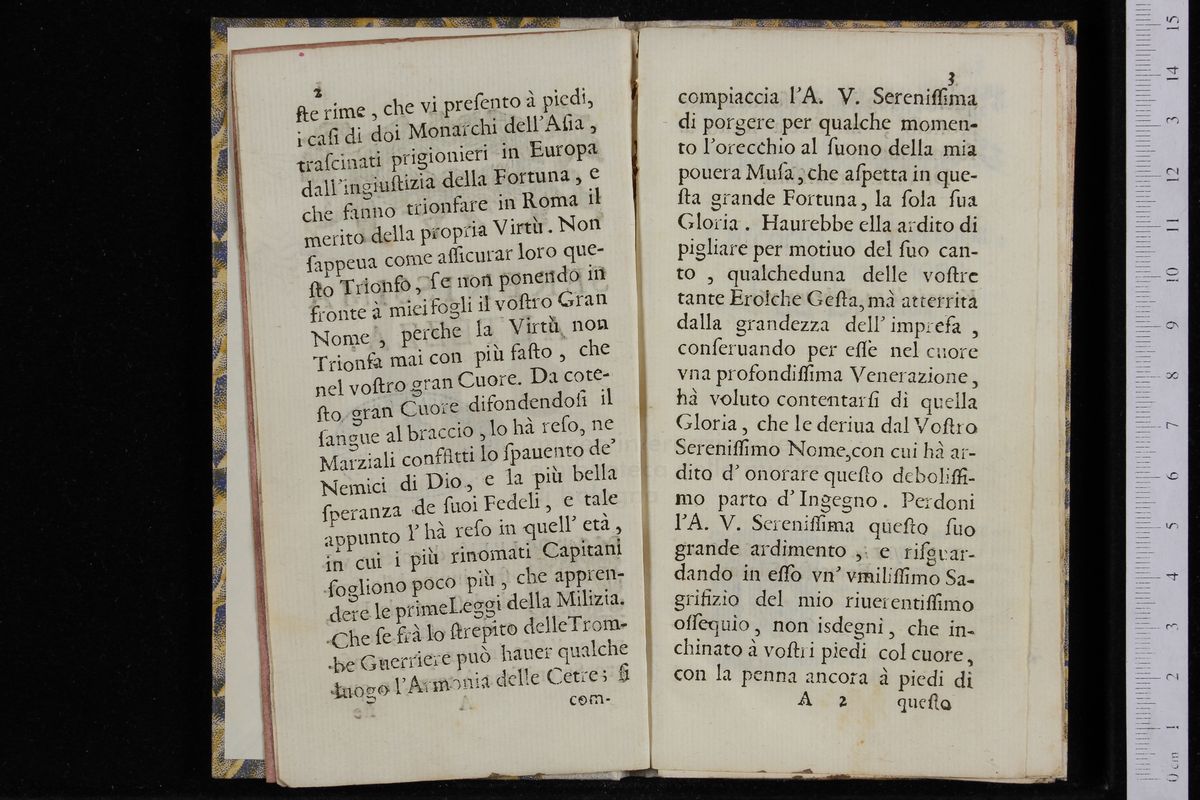 2
ſte rime, che vi preſento à piedi,
i caſi di doi Monarchi dell'Aſia,
traſcinati prigionieri in Europa
dall'ingiuſtizia della Fortuna, e
che fanno trionfare in Roma il
merito della propria Virtù. Non
ſappeua come aſſicurar loro que-
ſto Trionfo, ſe non ponendo in
fronte à miei fogli il voſtro Gran
Nome, perche la Virtù non
Trionfa mai con più faſto, che
nel voſtro gran Cuore. Da cote-
ſto gran Cuore difondendoſi il
ſangue al braccio, lo hà reſo, ne
Marziali conflitti lo ſpauento de'
Nemici di Dio, e la più bella
ſperanza de ſuoi Fedeli, e tale
appunto l'hà reſo in quell' età,
in cui i più rinomati Capitani
ſogliono poco più, che appren-
dere le prime Leggi della Milizia.
Che ſe frà lo ſtrepito delle Trom-
be Guerriere può hauer qualche
luogo l'Armonia delle Cetre; ſi
com-
3
compiaccia l'A. V. Sereniſſima
di porgere per qualche momen-
to l'orecchio al ſuono della mia
pouera Muſa, che aſpetta in que-
ſta grande Fortuna, la ſola ſua
Gloria. Haurebbe ella ardito di
pigliare per motiuo del ſuo can-
to, qualcheduna delle voſtre
tante Eroiche Geſta, mà atterrita
dalla grandezza dell' impreſa,
conſeruando per eſſe nel cuore
vna profondiſſima Venerazione,
hà voluto contentarſi di quella
Gloria, che le deriua dal Voſtro
Sereniſſimo Nome, con cui hà ar-
dito d' onorare queſto deboliſſi-
mo parto d' Ingegno. Perdoni
l'A. V. Sereniſſima queſto ſuo
grande ardimento, e riſguar-
dando in eſſo vn' vmiliſſimo Sa-
grifizio del mio riuerentiſſimo
oſſequio, non isdegni, che in-
chinato à voſtri piedi col cuore,
con la penna ancora à piedi di
A 2 queſto
0 cm 1 2 3 4 5 6 7 8 9 10 11 12 13 14 15